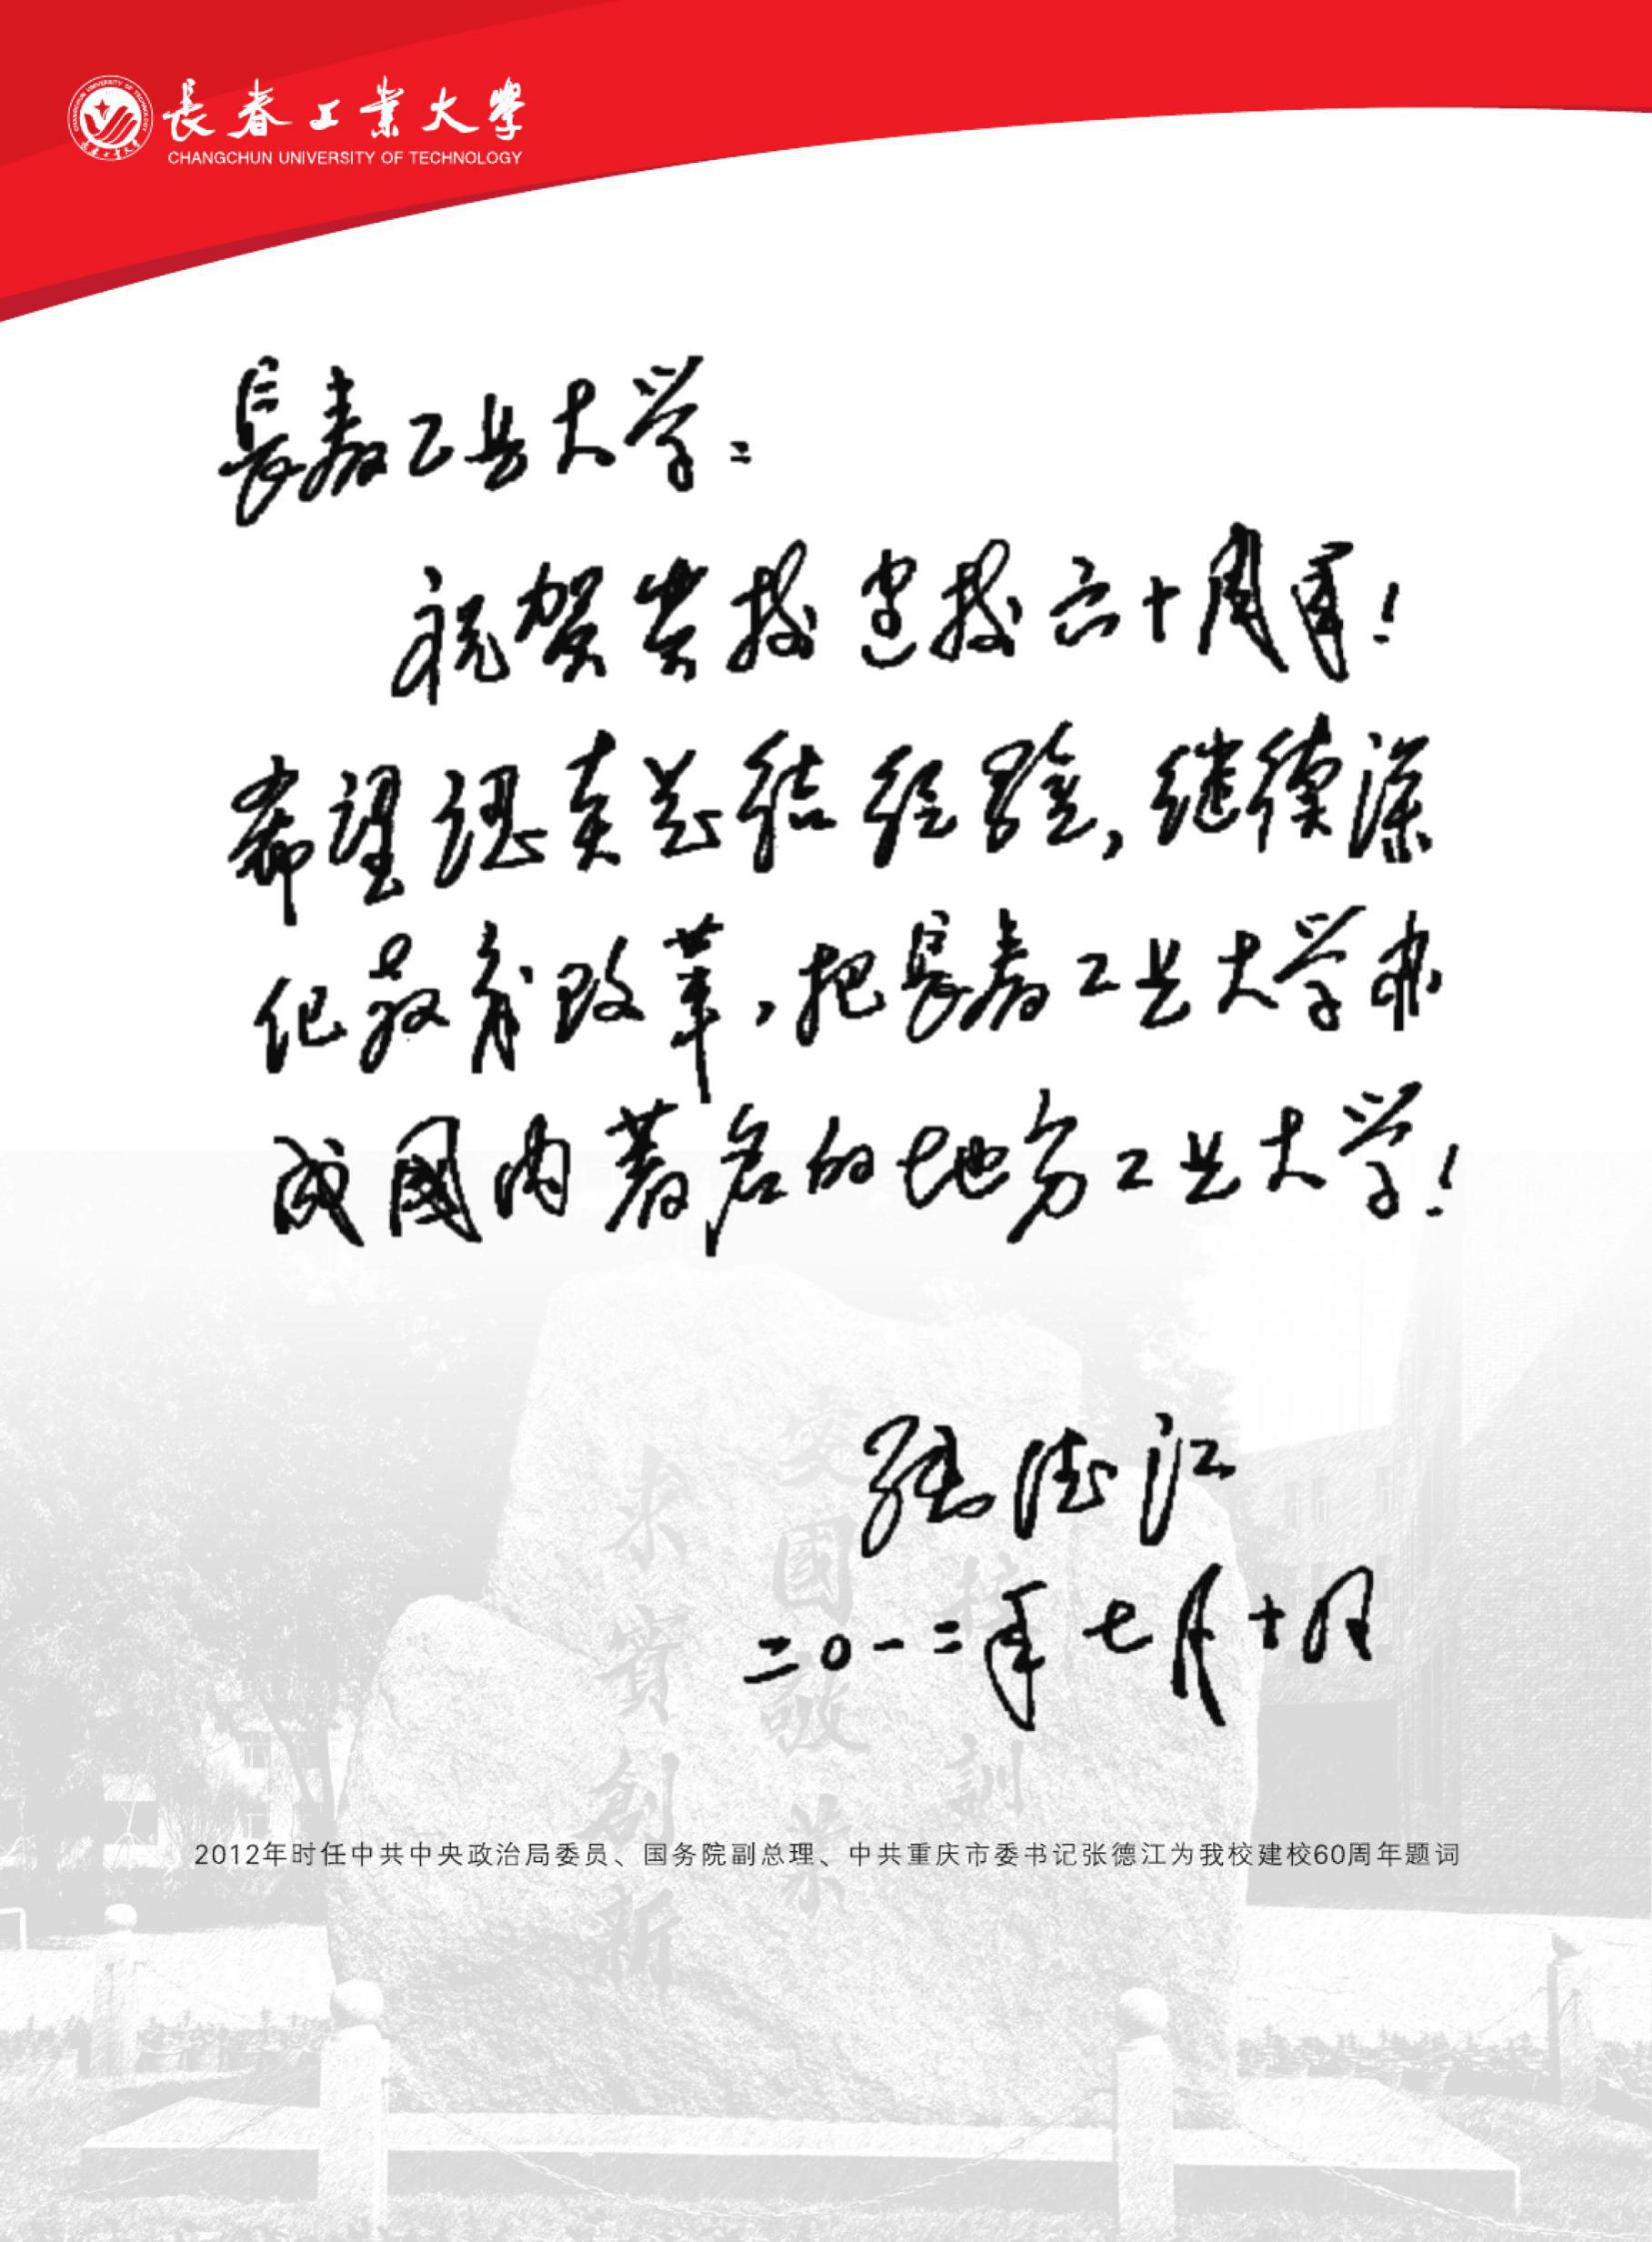 長春工業大學
CHANGCHUN UNIVERSITY OF TECHNOLOGY
長春工业大学：
祝贺贵校建校六十周年！
希望认真总结经验，继续深
化教育改革，把長春工业大学办
成國内著名的地方工业大学！
张德江
二〇一二年七月十日
2012年时任中共中央政治局委员、国务院副总理、中共重庆市委书记张德江为我校建校60周年题词
校訓
愛國敬業
求實創新